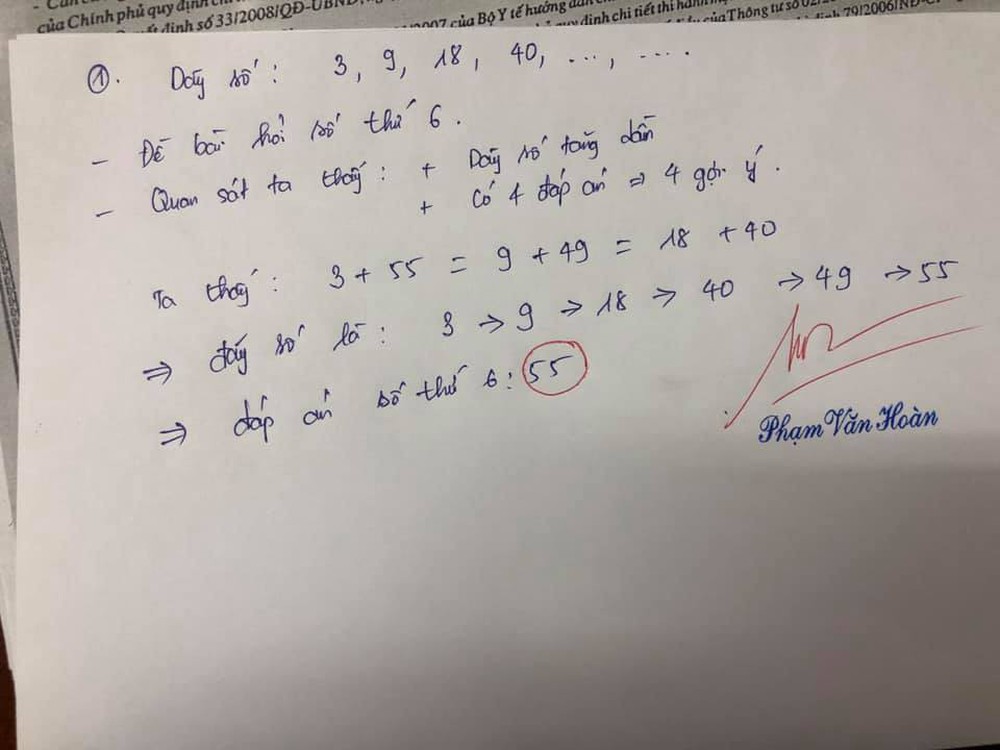 - Căn c
của Chính phủ quy định chi
định số 33/2008/QĐ-UBND,
/2007 của Bộ Y tế hướng dẫn
quy định chi tiết thi hành
của Thông tư số 02/2
định 79/2006/NĐ-CP
①. Dãy số : 3, 9, 18, 40, ..., ....
- Đề bài hỏi số thứ 6.
- Quan sát ta thấy : + Dãy số tăng dần
+ Có 4 đáp án ⇒ 4 gợi ý.
Ta thấy : 3 + 55 = 9 + 49 = 18 + 40
⇒ đấy số là : 3 → 9 → 18 → 40 → 49 → 55
⇒ đáp án số thứ 6 : 55
Phạm Văn Hoàn